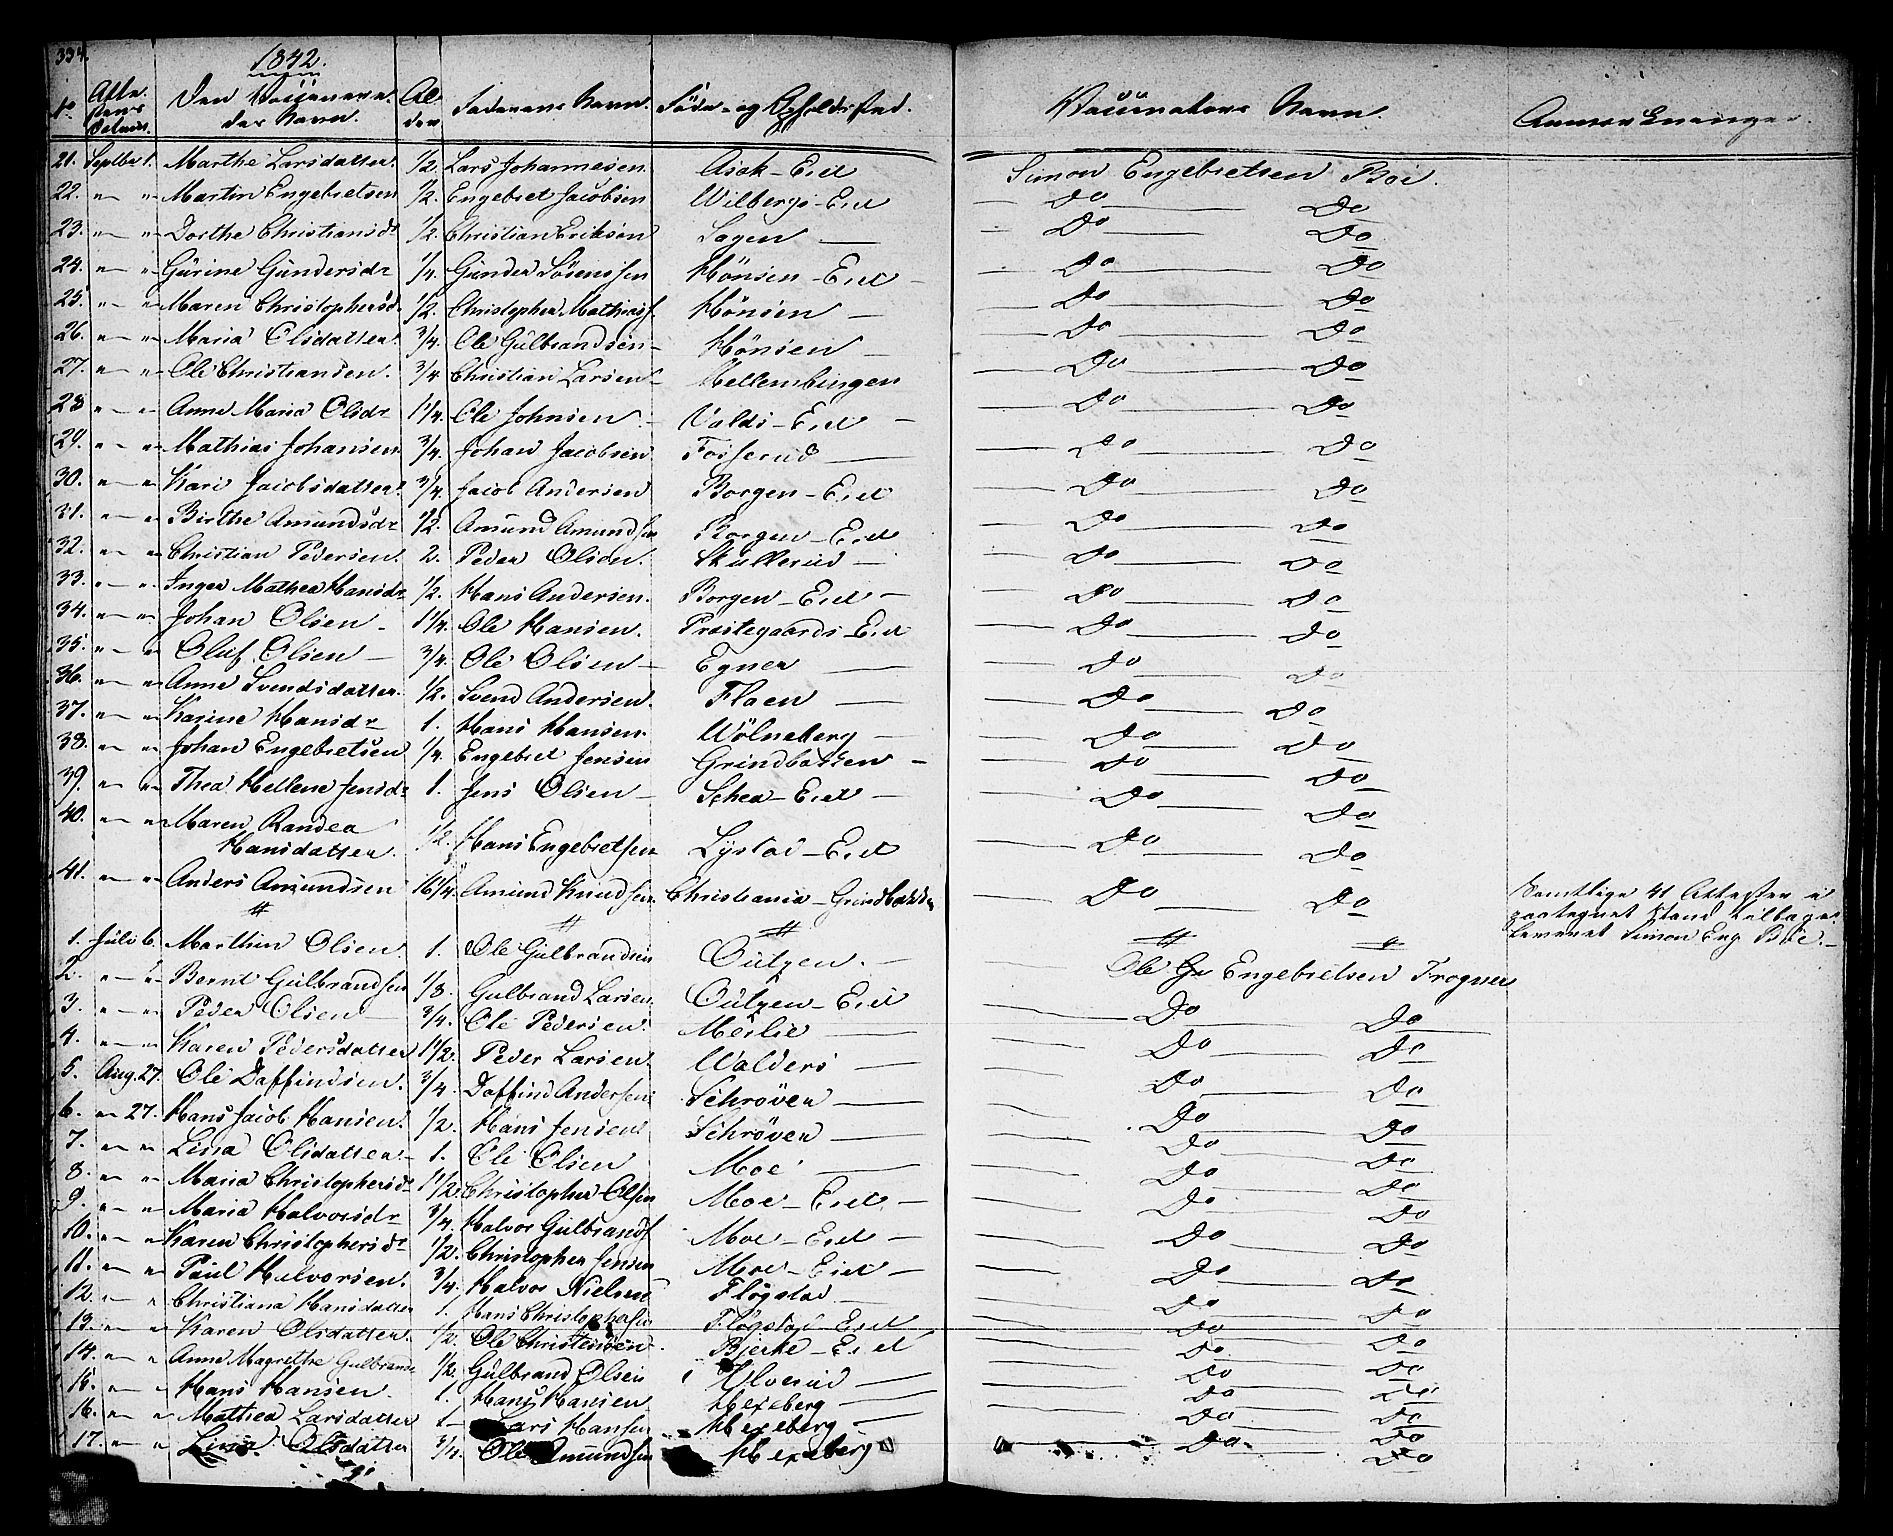 334.
1842.
No Attestens Datum. Den Vaccineredes Navn. Alder Faderens Navn. Føde- og Opholdssted. Vaccinateurs Navn. Anmærkninger.
21. Septbr 1. Marthe Larsdatter. 1/2. Lars Johannesen. Asak-Eiet Simon Engebretsen Böe.
22. " " Martin Engebretsen 1/2. Engebret Jacobsen Wilbergs-Eiet Do Do
23. " " Dorthe Christiansdr 1/2. Christian Eriksen Sagen — Do Do
24. " " Gürine Gundersdr 1/4. Gunder Sörenssen Hönsen-Eiet Do Do
25. " " Maren Christophersd. 1/2. Christopher Mathiass. Hönsen — Do Do
26. " " Maria Olsdatter. 3/4. Ole Gulbrandsen Hönsen — Do Do
27. " " Ole Christiansen. 3/4 Christian Larsen Mellembingen Do Do
28 " " Anne Maria Olsdr 1 1/4. Ole Johnsen Valds-Eiet — Do Do
29. " " Mathias Johansen 3/4. Johan Jacobsen Fosserud — Do Do
30. " " Kari Jacobsdatter. 3/4. Jacob Andersen Borgen-Eiet Do Do
31. " " Birthe Amundsdr 1/2. Amund Amundsen Borgen-Eiet Do Do
32. " " Christian Pedersen. 2. Peder Olsen. Skullerud — Do Do
33. " " Inger Mathea Hansdr 1/2. Hans Andersen. Borgen-Eiet — Do Do
34. " " Johan Olsen 1 1/4. Ole Hansen. Præstegaards-Eiet Do Do
35. " " Oluf Olsen — 3/4. Ole Olsen — Egner — Do Do
36. " " Anne Svendsdatter. 1/2. Svend Andersen. Flaen — Do Do
37. " " Karine Hansdr 1. Hans Hansen. Wölneberg — Do Do
38. " " Johan Engebretsen 1/4. Engebret Jensen Grindbakken — Do Do
39. " " Thea Hellene Jensdr 1. Jens Olsen — Schea-Eiet — Do Do
40. " " Maren Randea
Hansdatter. 1/2. Hans Engebretsen Lystad-Eiet Do Do
41. " " Anders Amundsen 16/4. Amund Knudsen Christiania-Grindbakken Do Do Samtlige 41 Attester i
paategnet Stand tilbage-
leveret Simon Eng Böe.
1. Juli 6. Marthin Olsen. 1. Ole Gulbrandsen Outzen. — Ole Engebretsen Frogner
2. " " Bernt Gulbrandsen 1/8. Gulbrand Larsen. Outzen-Eiet Do Do
3. " " Peder Olsen 3/4. Ole Pedersen. Meilie — Do Do
4. " " Karen Pedersdatter 1 1/2. Peder Larsen. Walders — Do Do
5. Aug. 27. Ole Daffindsen. 3/4. Daffind Andersen Schröver — Do Do
6. " 27. Hans Jacob Hansen. 1/2. Hans Jensen Schröver — Do Do
7. " " Lina Olsdatter 1. Ole Olsen Moe — Do Do
8. " " Maria Christophersdr 1 1/2. Christopher Olsen Moe-Eiet — Do Do
9. " " Maria Halvorsdr 3/4. Halvor Gulbrands. Moe-Eiet — Do Do
10. " " Karen Christophersdr 1/2. Christopher Jensen Moe-Eiet — Do Do
11. " " Paul Halvorsen. 3/4. Halvor Nielsen Flögstad — Do Do
12. " " Christiana Hansdatter 1. Hans Christophersen Flögstad-Eiet Do Do
13. " " Karen Olsdatter. 1/2. Ole Christensen Bjerke-Eiet Do Do
14. " " Anne Magrethe Gulbrands 1/2. Gulbrand Olsen Ulverud — Do Do
15. " " Hans Hansen. 1. Hans Hansen Hexeberg — Do Do
16. " " Mathea Larsdatter 1 Lars Hansen Hexeberg — Do Do
17. " " Lina Olsdatter 3/4. Ole Amundsen Hexeberg Do Do